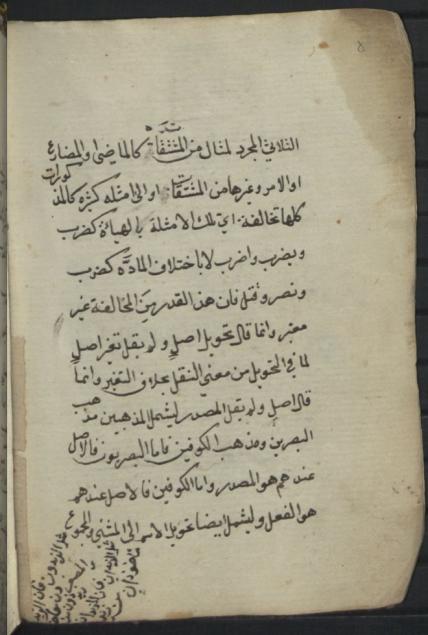 الثلاثي المجرد لمثال من المشتقاة كالماضي او المضارع
او الامر وغيرها من المشتقات او الى امثلة كثيرة كالمذكورات
كلها تخالفه اي تلك الامثلة بالهيائة كضرب
ويضرب واضرب لا باختلاف المادة كضرب
ونصر وقتل فان هذا القدر من المخالفة غير
معتبر وانما قال تحويل اصل ولم يقل تغير اصل
لما في التحويل من معنى النقل بخلاف التغير وانما
قال اصل ولم يقل المصدر ليشمل المذهبين مذهب
البصرين ومذهب الكوفين فاما البصريون فالاصل
عندهم هو المصدر واما الكوفين فالاصل عندهم
هو الفعل وليشمل ايضا تحويل الاسم الى المثنى والمجموع